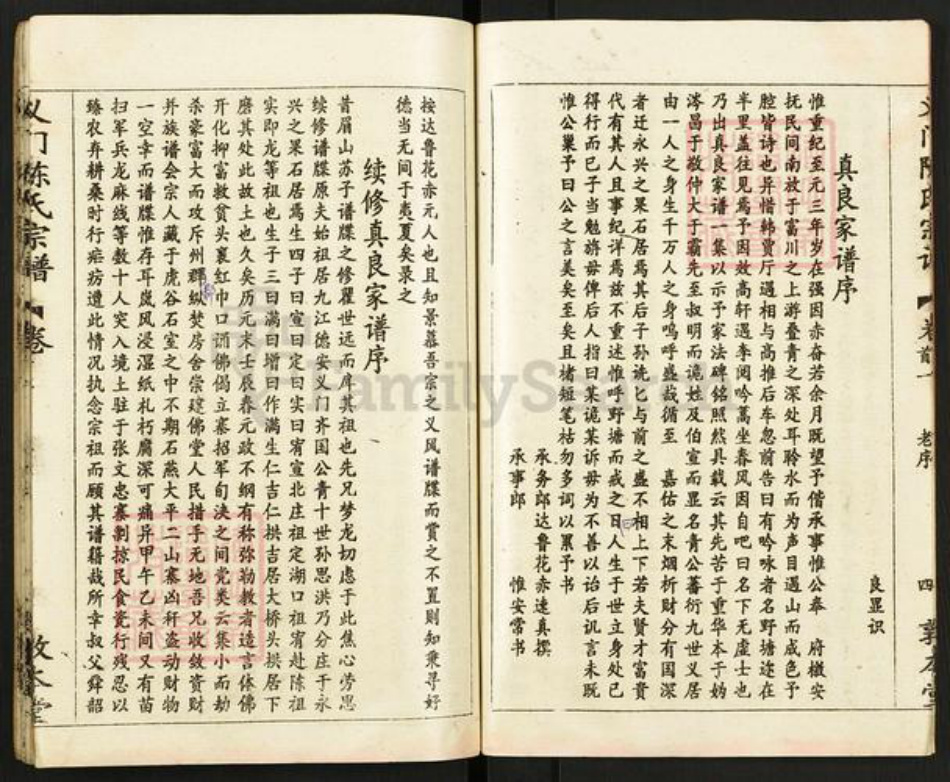 良显识
真良家谱序
惟重纪至元三年岁在强因赤奋若余月既望予偕承事惟公奉 府檄安
抚民间南放于富川之上游叠青之深处耳聆水而为声目遇山而成色予
腔皆诗也异惜韩贾厅遇相与高推后车忽前告曰有吟咏者名野塘迩在
半里盖往见焉予因效高轩遇李阅吟蒿坐春风因自吧曰名下无虚士也
乃出真良家谱一集以示予家法碑铭照然具载云其先苦于重华本于妫
沩昌于敬仲大于霸先至叔明而诡姓及伯宣而显名青公蕃衍九世义居
由一人之身生千万人之身呜呼盛哉循至 嘉佑之末烟析财分有国深
者迁永兴之果石居焉其后子孙诜匕与前之盛不相上下若夫贤才富贵
代有其人且事纪洋焉兹不重述惟呼野塘而戒之曰人生于世立身处已
得行而已子当勉旃毋俾后人指曰某诡某诉毋为不善以诒后讥言未既
惟公粟予曰公之言美矣至矣且堵短笔枯勿多词以累予书
承务郎达鲁花赤速真撰
承事郎 惟安常书
按达鲁花赤元人也且知景慕吾宗之义风谱牒而赏之不置则知秉寻好
德当无间于夷夏矣录之
续修真良家谱序
昔眉山苏子谱牒之修瞿世远而库其祖也先兄梦龙切虑于此焦心劳思
续修谱牒原夫始祖居九江德安义门齐国公青十世孙思洪乃分庄于永
兴之果石居焉生四子曰宣曰定曰实曰宥宣北庄祖定湖口祖宥赴陈祖
实即龙等祖也生子三曰满曰增曰作满生仁吉仁拱吉居大桥头拱居下
磨其处此故土也久矣历元末壬辰春元政不纲有称弥勒教者造言体佛
开化抑富救贫头裹红巾口诵佛偈立寨招军旬浃之间党类云集小而劫
杀豪富大而攻斥州郡纵焚房舍崇建佛堂人民措手无地吾兄收敛资财
并族谱会宗人藏于虎谷石室之中不期石燕大平二山寨凶秆盗动财物
一空幸而谱牒惟存耳岚风浸湿纸札朽腐深可痛异甲午乙未间又有苗
扫军兵龙麻线等数十人突入境土驻于张文忠寨剽掠民食瓷行残忍以
臻农弃耕桑时行疟疠遭此情况执念宗祖而顾其谱籍哉所幸叔父舜韶
义门陈氏宗谱
卷
敦本堂
卷首一
老序
四
FamilySearch